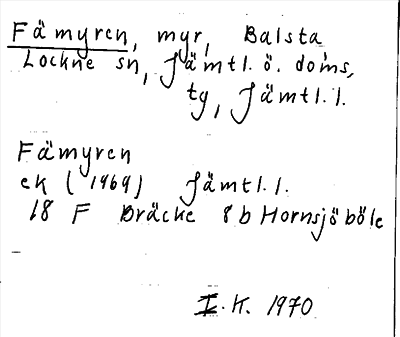 Fämyren, myr, Balsta
Lockne sn, Jämtl. ö. doms,
tg, Jämtl. l.
Fämyren
ek (1969) Jämtl. l.
18 F Bräcke 8 b Hornsjöböle
I. K. 1970